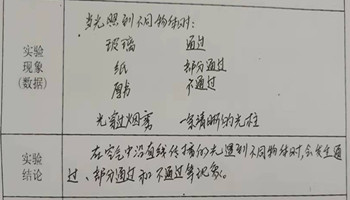 实验
现象
(数据)
当光照到不同物体时:
玻璃 通过
纸 部分通过
厚书 不通过
光穿过烟雾 一条清晰的光柱
实验
结论
在空气中沿直线传播的光遇到不同物体时,会发生通
过、部分通过和不通过等现象。